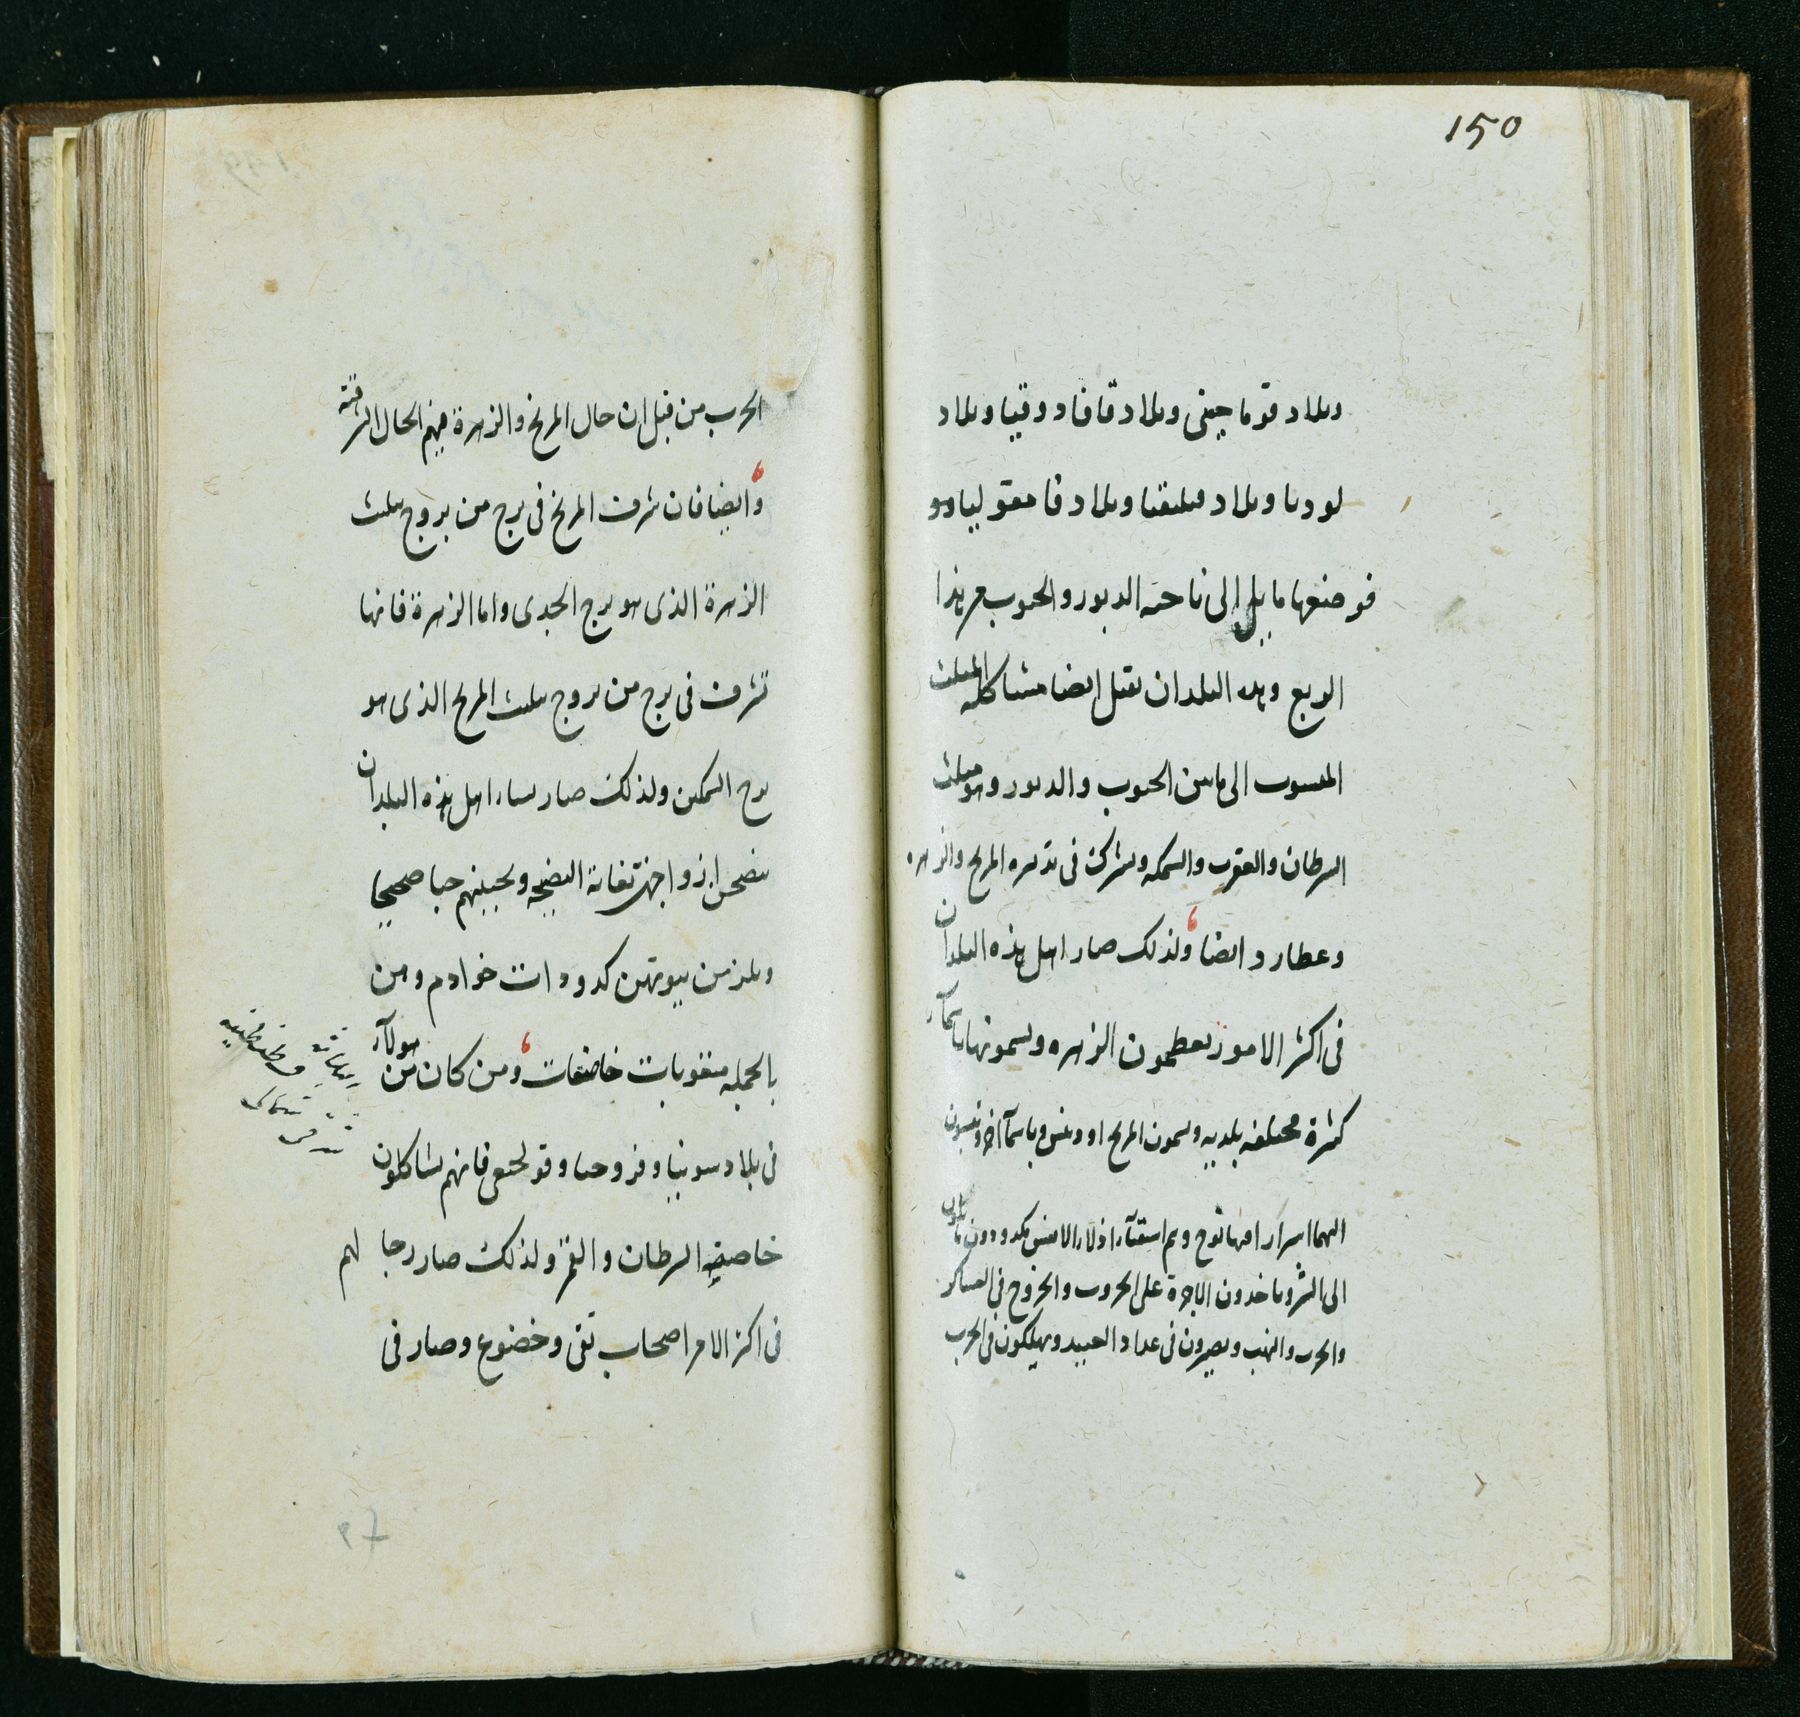 150
وبلاد قوماجينى وبلاد قافادوقيا وبلاد
لوديا وبلاد قيليقيا وبلاد فامغوليا وهو
فوضعها ما يلى إلى ناحية الدبور والجنوب من هذا
الربع وهذه البلدان تقبل ايضا مشاكلة المثلث
المنسوب الى ما بين الجنوب والدبور وهو مثلث
السرطان والعقرب والسمكه ويشرك فى تدبيره المريخ والزهره
وعطارد ايضا ولذلك صار اهل هذه البلدان
فى اكثر الامور يعظمون الزهره ويسمونها باسمآء
كثيرة مختلفه بلديه ويسمون المريخ اودينس وباسمآء اخر وينسبون
اليهما اسرارا فيها نوح وهم اشقيآء اذلاء الانفس مكدودون مائلون
الى الشر وياخذون الاجرة على الحروب والخروج فى العساكر
والحرب والنهب ويصيرون فى عداد العبيد ويهلكون فى الحرب
الحرب من قبل ان حال المريخ والزهرة فيهم الحال الشرقية
وايضا فان شرف المريخ فى برج من بروج مثلث
الزهرة الذى هو برج الجدى واما الزهرة فانها
تشرف فى برج من بروج مثلث المريخ الذى هو
برج السمكتين ولذلك صار نساء اهل هذه البلدان
ينصحن ازواجهن بغاية النصيحه ويحببنهم حبا صحيحا
ويلزمن بيوتهن كدودات خوادم وهن
بالجمله متعوبات خاضعات ومن كان من هولآء
فى بلاد سوثينيا وفروجيا وقولخيقى فانهم يشاكلون
خاصية السرطان والقمر ولذلك صار رجالهم
فى اكثر الامر اصحاب تقى وخضوع وصار فى